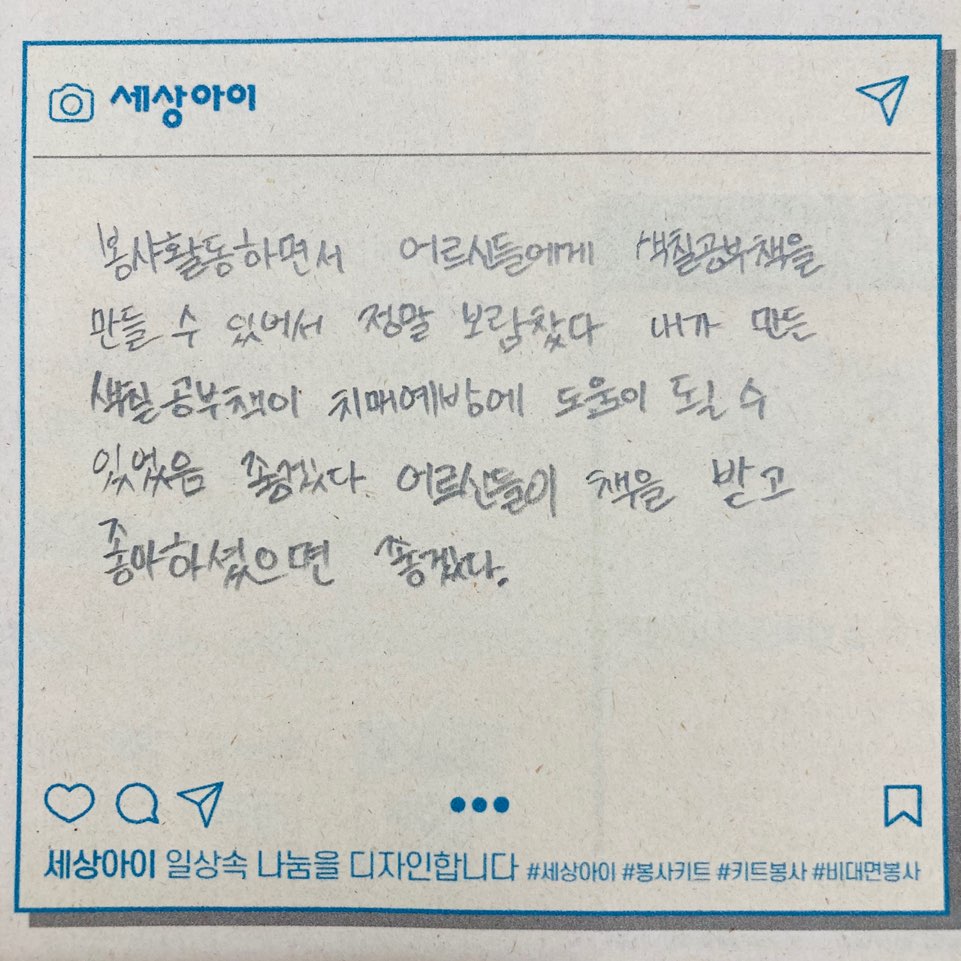 세상아이
봉사활동하면서 어르신들에게 색칠공부책을
만들 수 있어서 정말 보람찼다 내가 만든
색칠공부책이 치매예방에 도움이 될 수
있었음 좋겠다 어르신들이 책을 받고
좋아하셨으면 좋겠다.
세상아이 일상속 나눔을 디자인합니다 #세상아이 #봉사키트 #키트봉사 #비대면봉사